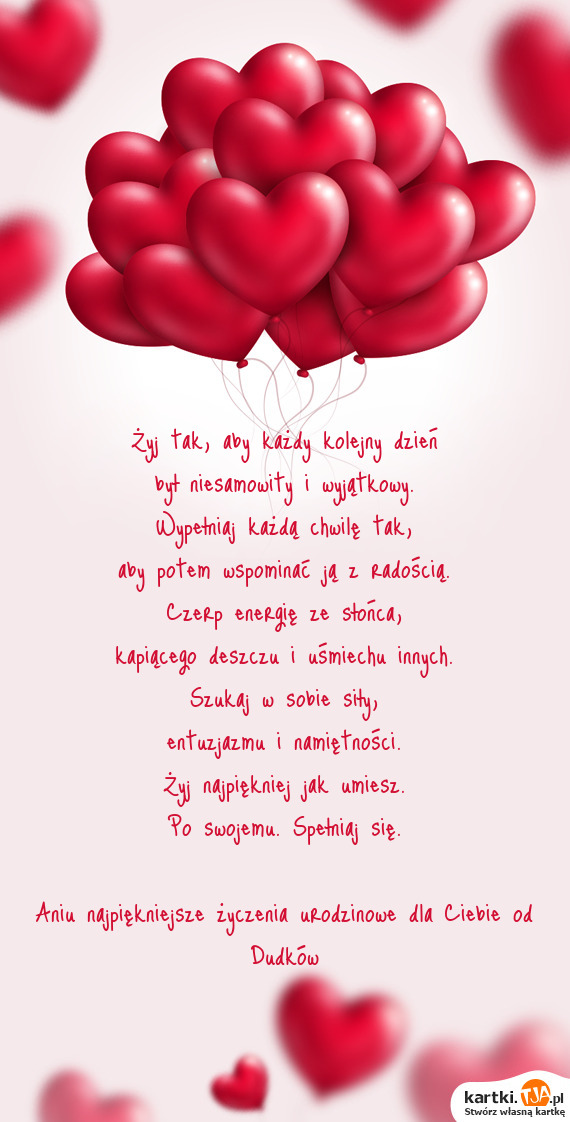 Żyj tak, aby każdy kolejny dzień
był niesamowity i wyjątkowy.
Wypełniaj każdą chwilę tak,
aby potem wspominać ją z radością.
Czerp energię ze słońca,
kapiącego deszczu i uśmiechu innych.
Szukaj w sobie siły,
entuzjazmu i namiętności.
Żyj najpiękniej jak umiesz.
Po swojemu. Spełniaj się.
Aniu najpiękniejsze życzenia urodzinowe dla Ciebie od
Dudków
kartki.TJA.pl
Stwórz własną kartkę